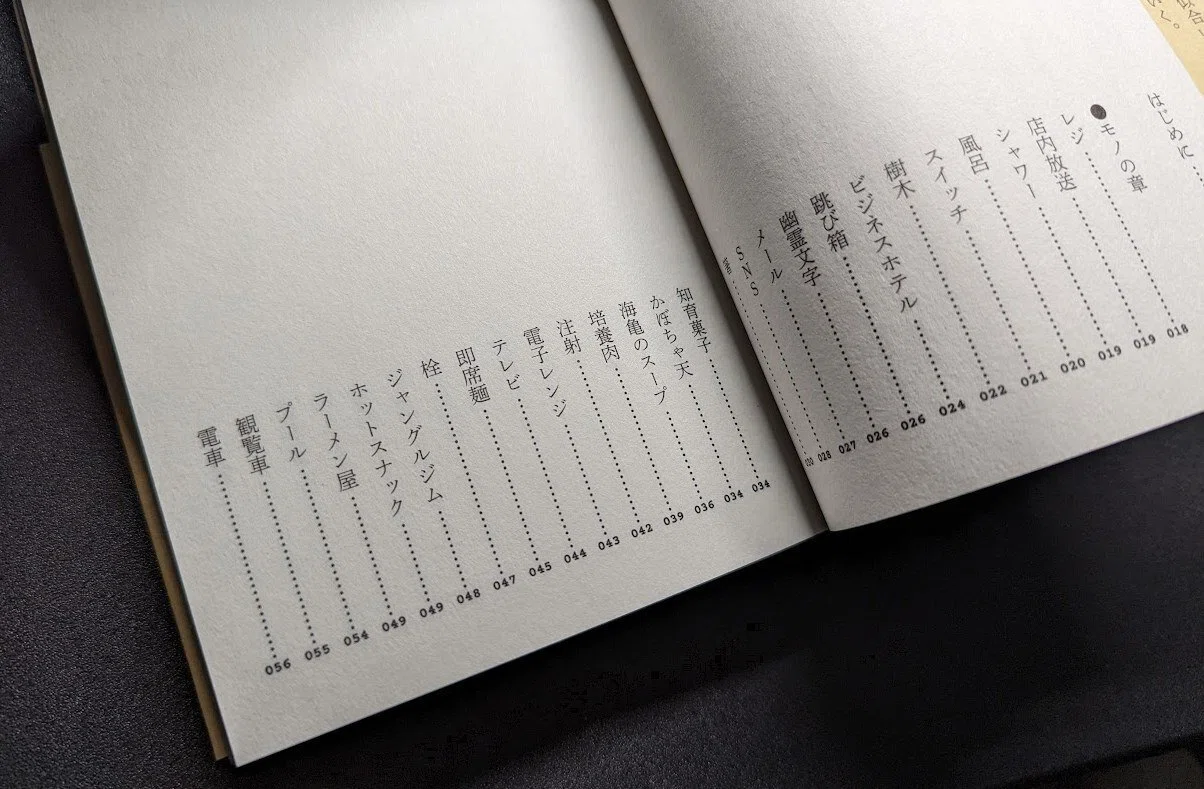 はじめに……
●モノの章
レジ……018
店内放送……019
シャワー……019
風呂……020
スイッチ……021
樹木……022
ビジネスホテル……024
跳び箱……026
幽霊文字……026
メール……027
SNS……028
……030
知育菓子……034
かぼちゃ天……034
海亀のスープ……036
培養肉……039
注射……042
電子レンジ……043
テレビ……044
即席麺……045
栓……047
ジャングルジム……048
ホットスナック……049
ラーメン屋……049
プール……054
観覧車……055
電車……056